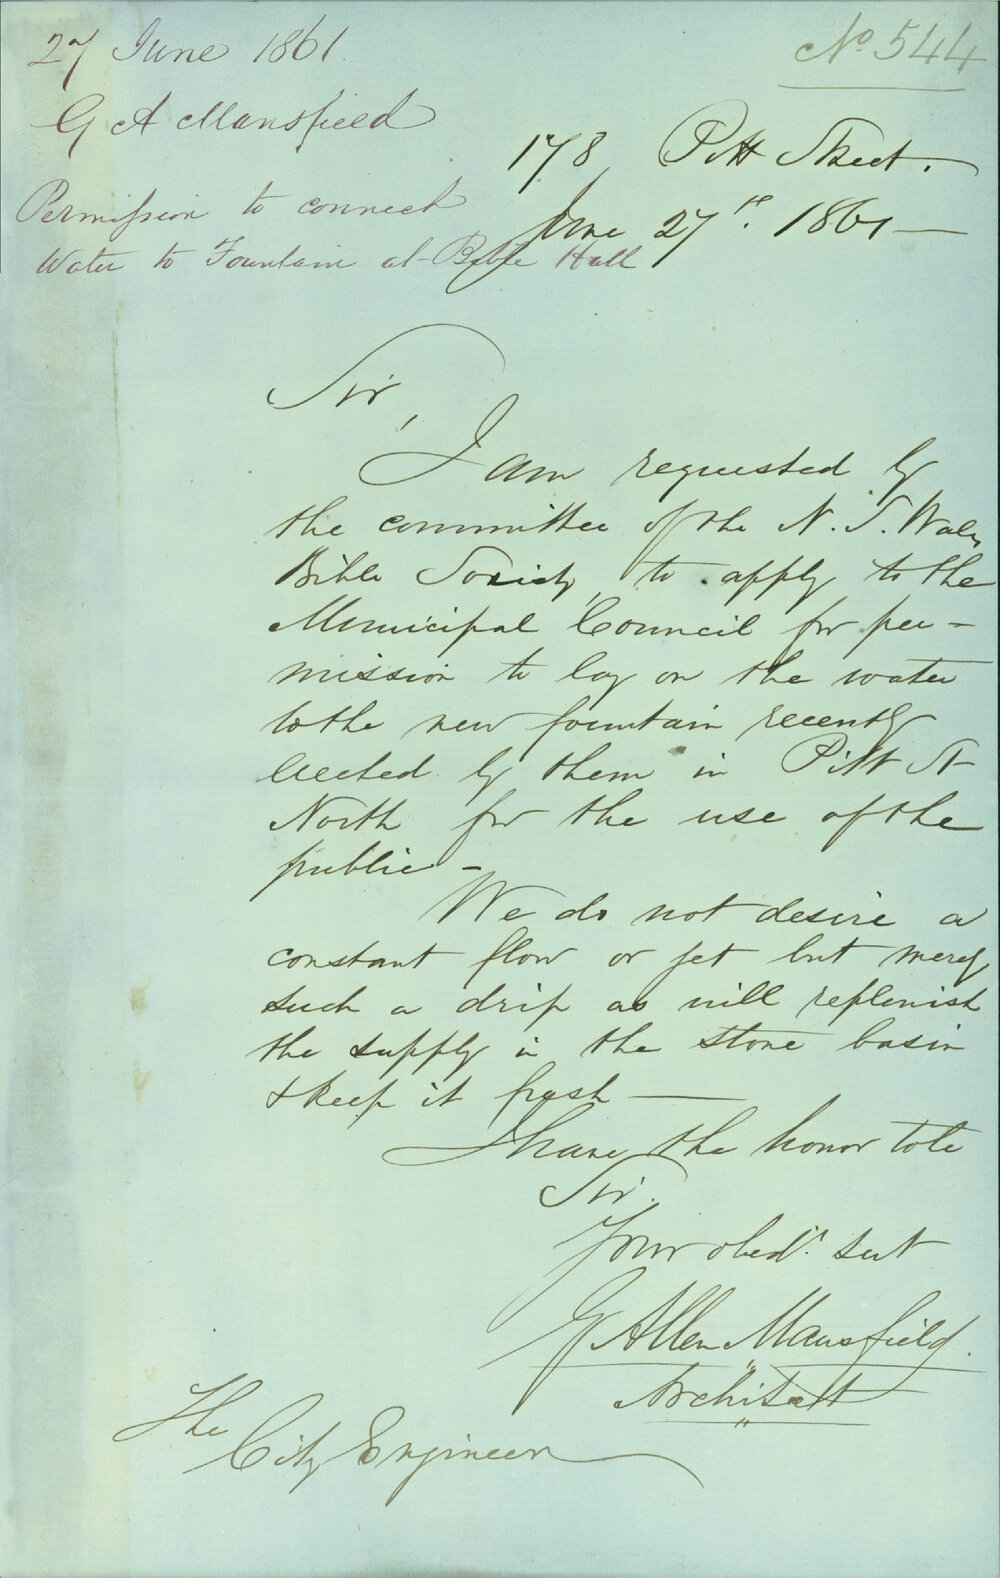 27 June 1861.
No 544
G A Mansfield
178 Pitt Street.
Permission to connect
June 27th. 1861 —
Water to Fountain at Bible Hall
Sir,
I am requested by
the committee of the N. S. Wales
Bible Society, to apply to the
Municipal Council for per-
mission to lay on the water
to the new fountain recently
erected by them in Pitt St
North for the use of the
public -
We do not desire a
constant flow or jet but merely
such a drip as will replenish
the supply in the stone basin
& keep it fresh —
I have the honor to be
Sir.
Your obedt. servt
G Allen Mansfield.
Architect
The
City Engineer